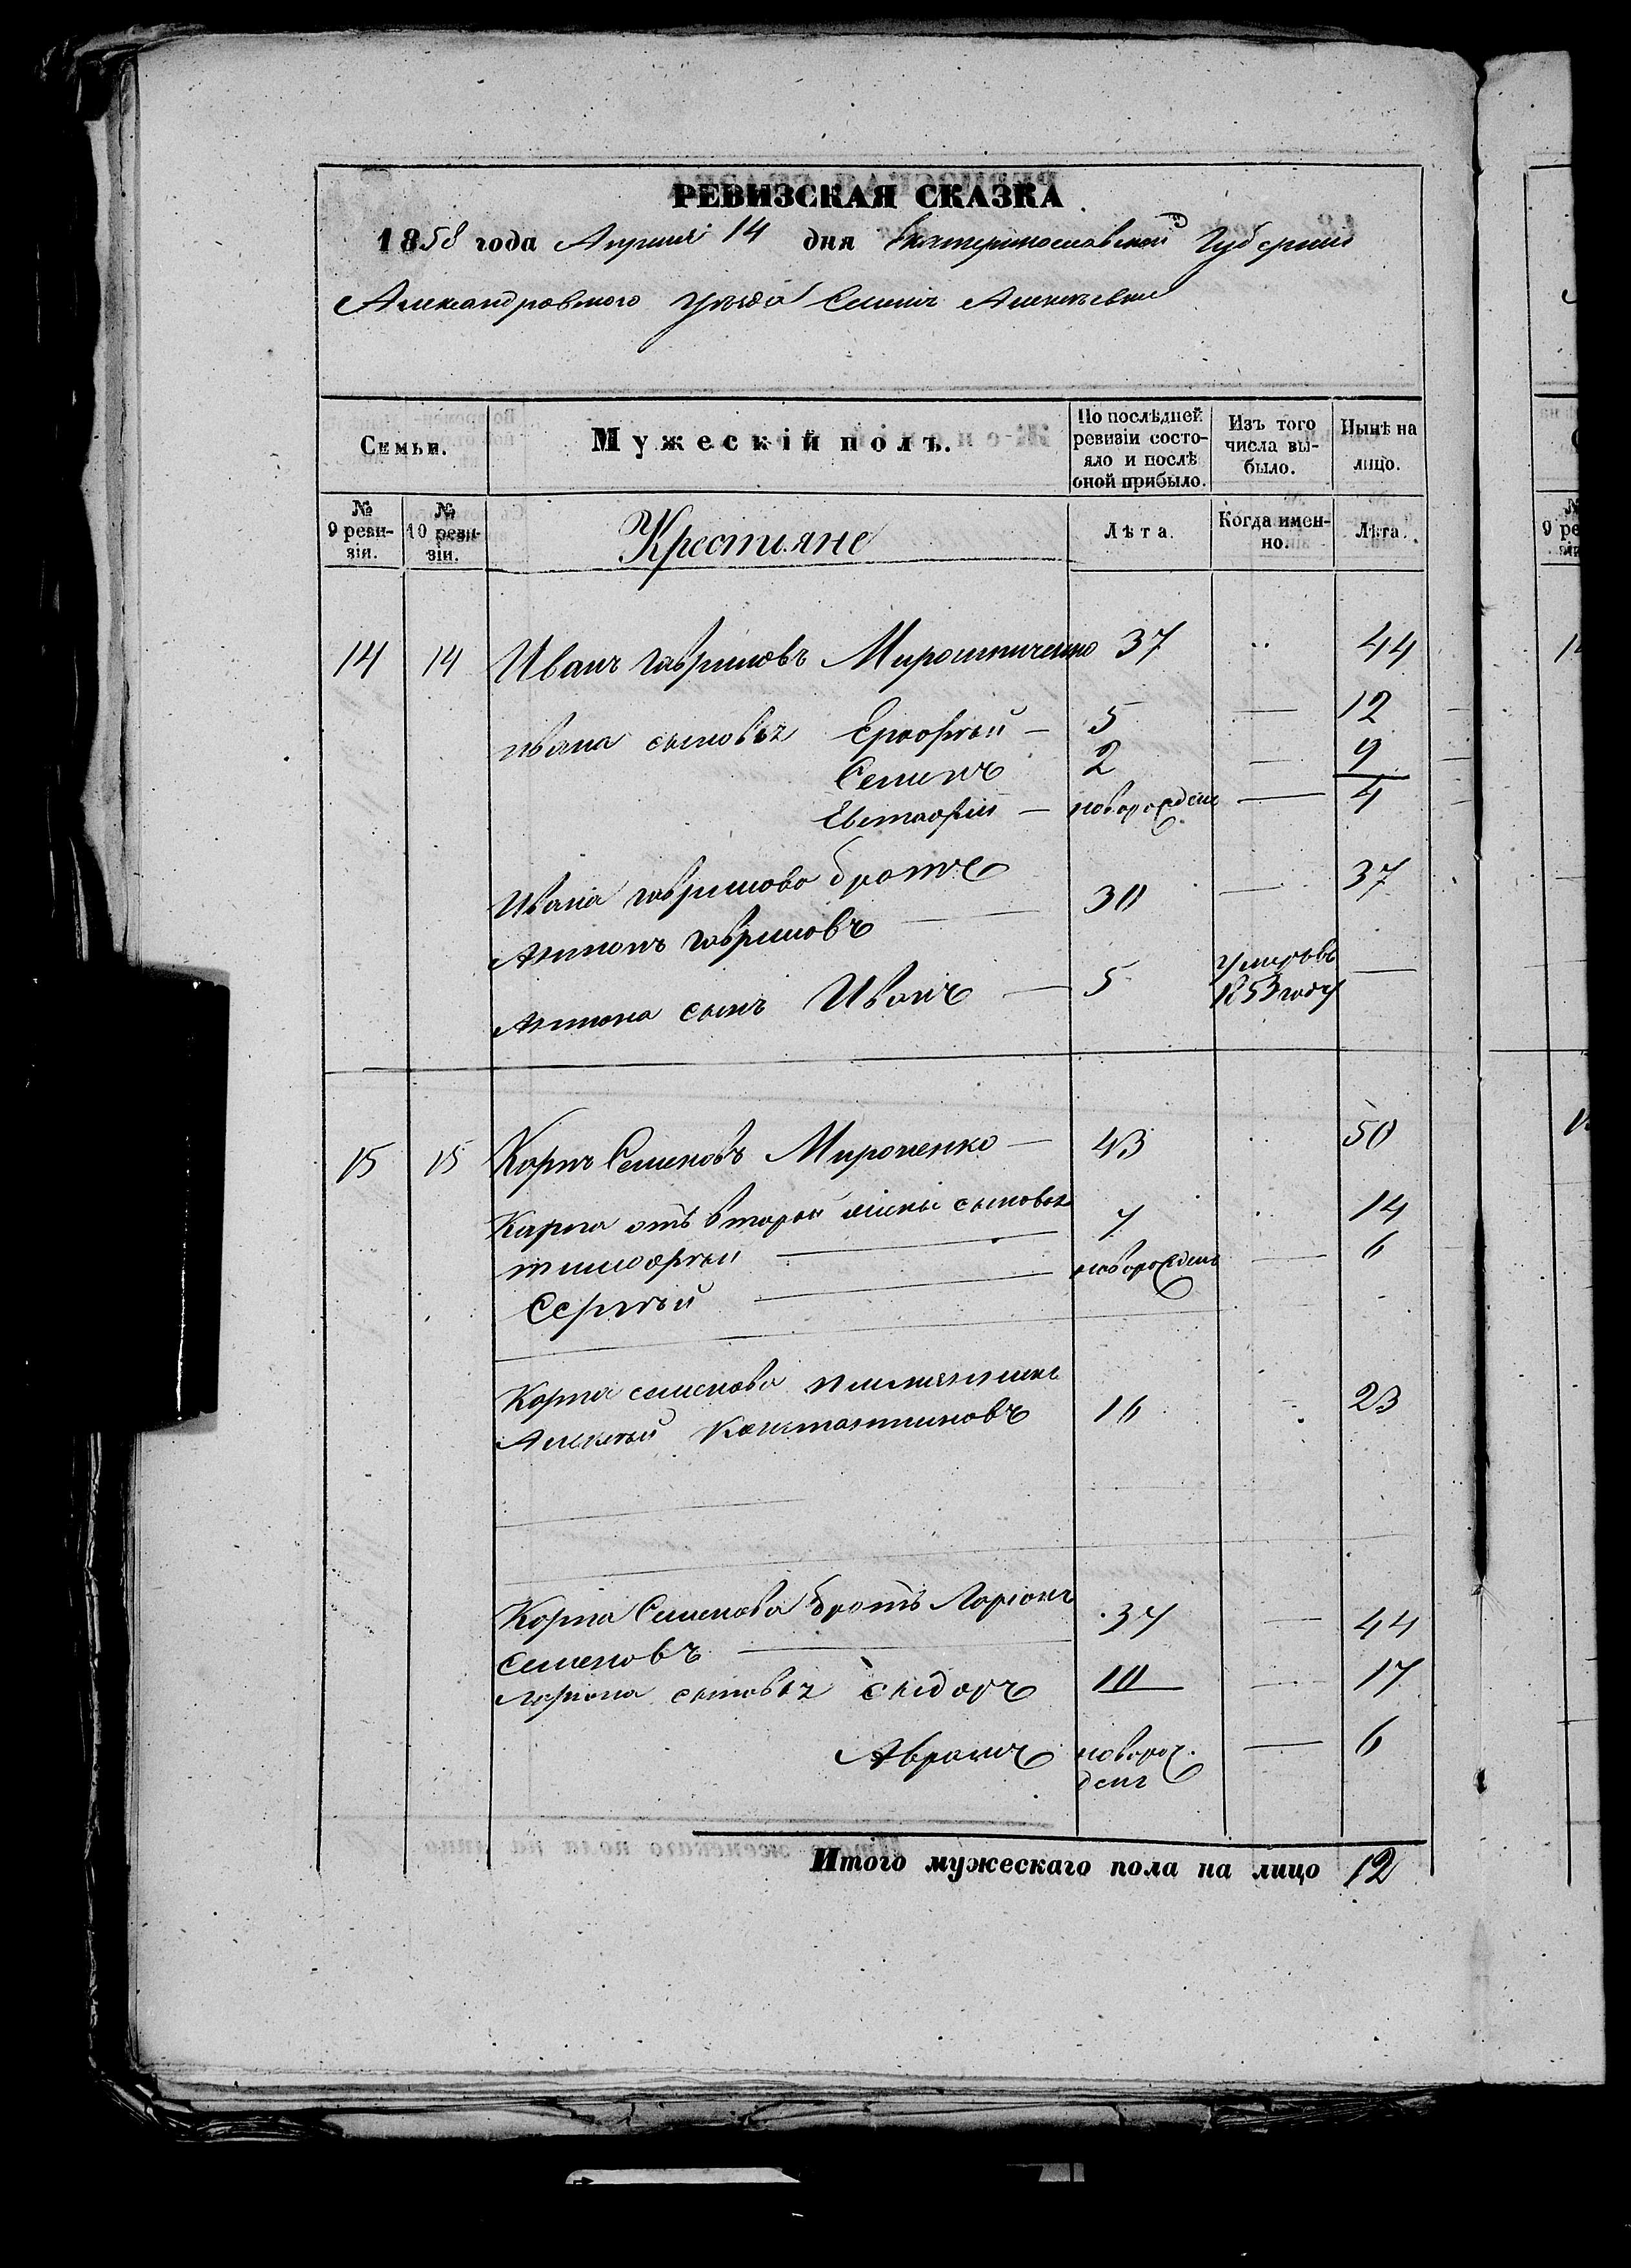 РЕВИЗСКАЯ СКАЗКА
1858 года Апреля 14 дня Екатеринославской Губернии
Александровского уезда Алексеевки
Семьи.
Мужескій полъ.
По послѣдней ревизіи состояло и послѣ оной прибыло.
Изъ того числа выбыло.
Нынѣ на лицо.
№ 9 ревизіи.
№ 10 ревизіи.
Крестьяне
Лѣта.
Когда именно.
Лѣта.
14 14 Иванъ Гавриловъ Мирошниченко 37 44
Ивана сыновья Ерофѣй — 5 — 12
Семенъ 2 — 9
Евстафій — новорожденъ — 4
Ивана Гаврилова братъ
Антонъ Гавриловъ — 30 — 37
Антона сынъ Иванъ — 5 умеръ въ 1853 году —
15 15 Карпъ Семеновъ Мироненко — 43 50
Карпа отъ второй жены сыновья
Тимофѣй — 7 14
Сергѣй — новорожденъ — 6
Карпа Семенова племянникъ
Алексѣй Константиновъ 16 23
Карпа Семенова братъ Ларіонъ
Семеновъ — 37 — 44
Ларіона сыновья Сидоръ 10 — 17
Аврамъ новорожденъ — 6
Итого мужескаго пола на лицо 12